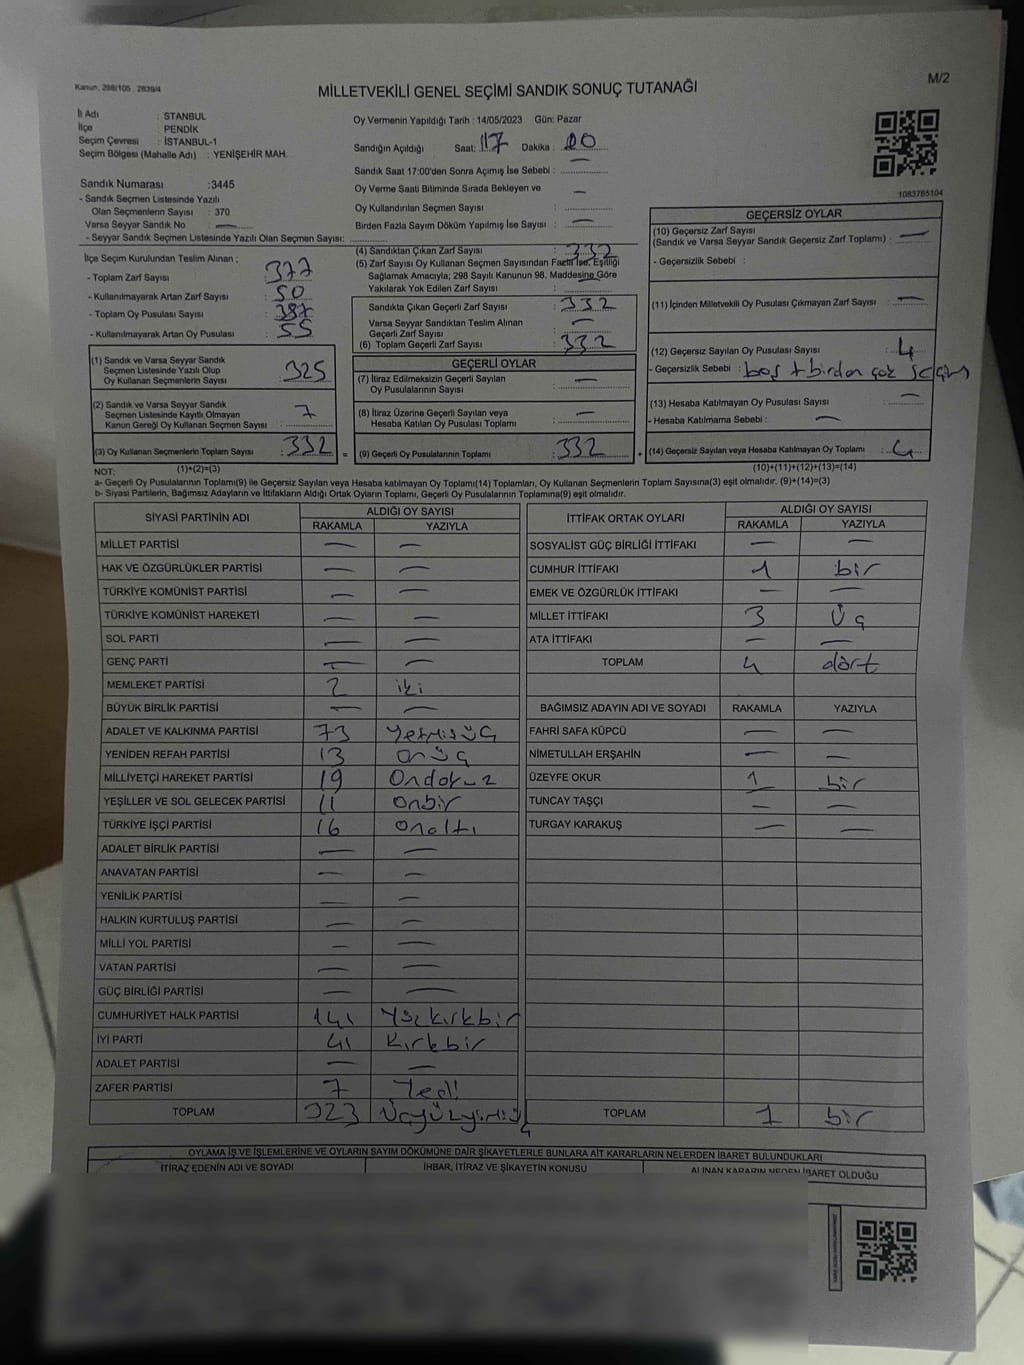 Kanun, 298/105 , 2839/4
M/2
MİLLETVEKİLİ GENEL SEÇİMİ SANDIK SONUÇ TUTANAĞI
İl Adı : STANBUL
İlçe : PENDİK
Seçim Çevresi : İSTANBUL-1
Seçim Bölgesi (Mahalle Adı) : YENİŞEHİR MAH.
Sandık Numarası :3445
- Sandık Seçmen Listesinde Yazılı
Olan Seçmenlerin Sayısı : 370
Varsa Seyyar Sandık No : —
- Seyyar Sandık Seçmen Listesinde Yazılı Olan Seçmen Sayısı:
Oy Vermenin Yapıldığı Tarih : 14/05/2023 Gün: Pazar
Sandığın Açıldığı Saat: 17 Dakika : 00
Sandık Saat 17:00'den Sonra Açımış İse Sebebi : —
Oy Verme Saati Bitiminde Sırada Bekleyen ve
Oy Kullandırılan Seçmen Sayısı : —
Birden Fazla Sayım Döküm Yapılmış İse Sayısı : —
1083765104
İlçe Seçim Kurulundan Teslim Alınan ;
- Toplam Zarf Sayısı : 377
- Kullanılmayarak Artan Zarf Sayısı : 50
- Toplam Oy Pusulası Sayısı : 387
- Kullanılmayarak Artan Oy Pusulası : 55
(1) Sandık ve Varsa Seyyar Sandık
Seçmen Listesinde Yazılı Olup
Oy Kullanan Seçmenlerin Sayısı : 325
(2) Sandık ve Varsa Seyyar Sandık
Seçmen Listesinde Kayıtlı Olmayan
Kanun Gereği Oy Kullanan Seçmen Sayısı : 7
(3) Oy Kullanan Seçmenlerin Toplam Sayısı : 332 =
(4) Sandıktan Çıkan Zarf Sayısı : 332
(5) Zarf Sayısı Oy Kullanan Seçmen Sayısından Fazla İse, Eşitliği
Sağlamak Amacıyla; 298 Sayılı Kanunun 98. Maddesine Göre
Yakılarak Yok Edilen Zarf Sayısı :
Sandıkta Çıkan Geçerli Zarf Sayısı : 332
Varsa Seyyar Sandıktan Teslim Alınan
Geçerli Zarf Sayısı : —
(6) Toplam Geçerli Zarf Sayısı : 332
GEÇERLİ OYLAR
(7) İtiraz Edilmeksizin Geçerli Sayılan
Oy Pusulasının Sayısı : —
(8) İtiraz Üzerine Geçerli Sayılan veya
Hesaba Katılan Oy Pusulası Toplamı : —
(9) Geçerli Oy Pusulalarının Toplamı : 332 +
GEÇERSİZ OYLAR
(10) Geçersiz Zarf Sayısı
(Sandık ve Varsa Seyyar Sandık Geçersiz Zarf Toplamı) : —
- Geçersizlik Sebebi :
(11) İçinden Milletvekili Oy Pusulası Çıkmayan Zarf Sayısı : —
(12) Geçersiz Sayılan Oy Pusulası Sayısı : 4
- Geçersizlik Sebebi : boş + birden çok seçim
(13) Hesaba Katılmayan Oy Pusulası Sayısı : —
- Hesaba Katılmama Sebebi : —
(14) Geçersiz Sayılan veya Hesaba Katılmayan Oy Toplamı : 4
NOT: (1)+(2)=(3) (10)+(11)+(12)+(13)=(14)
a- Geçerli Oy Pusulalarının Toplamı(9) ile Geçersiz Sayılan veya Hesaba katılmayan Oy Toplamı(14) Toplamları, Oy Kullanan Seçmenlerin Toplam Sayısına(3) eşit olmalıdır. (9)+(14)=(3)
b- Siyasi Partilerin, Bağımsız Adayların ve İttifakların Aldığı Ortak Oyların Toplamı, Geçerli Oy Pusulalarının Toplamına(9) eşit olmalıdır.
SİYASİ PARTİNİN ADI ALDIĞI OY SAYISI
RAKAMLA YAZIYLA
MİLLET PARTİSİ — —
HAK VE ÖZGÜRLÜKLER PARTİSİ — —
TÜRKİYE KOMÜNİST PARTİSİ — —
TÜRKİYE KOMÜNİST HAREKETİ — —
SOL PARTİ — —
GENÇ PARTİ — —
MEMLEKET PARTİSİ 2 iki
BÜYÜK BİRLİK PARTİSİ — —
ADALET VE KALKINMA PARTİSİ 73 Yetmişüç
YENİDEN REFAH PARTİSİ 13 onüç
MİLLİYETÇİ HAREKET PARTİSİ 19 Ondokuz
YEŞİLLER VE SOL GELECEK PARTİSİ 11 onbir
TÜRKİYE İŞÇİ PARTİSİ 16 onaltı
ADALET BİRLİK PARTİSİ — —
ANAVATAN PARTİSİ — —
YENİLİK PARTİSİ — —
HALKIN KURTULUŞ PARTİSİ — —
MİLLİ YOL PARTİSİ — —
VATAN PARTİSİ — —
GÜÇ BİRLİĞİ PARTİSİ — —
CUMHURİYET HALK PARTİSİ 141 Yüzkırkbir
İYİ PARTİ 41 Kırkbir
ADALET PARTİSİ — —
ZAFER PARTİSİ 7 Yedi
TOPLAM 323 Üçyüzyirmiüç
İTTİFAK ORTAK OYLARI ALDIĞI OY SAYISI
RAKAMLA YAZIYLA
SOSYALİST GÜÇ BİRLİĞİ İTTİFAKI — —
CUMHUR İTTİFAKI 1 bir
EMEK VE ÖZGÜRLÜK İTTİFAKI — —
MİLLET İTTİFAKI 3 Üç
ATA İTTİFAKI — —
TOPLAM 4 dört
BAĞIMSIZ ADAYIN ADI VE SOYADI RAKAMLA YAZIYLA
FAHRİ SAFA KÜPCÜ — —
NİMETULLAH ERŞAHİN — —
ÜZEYFE OKUR 1 bir
TUNCAY TAŞÇI — —
TURGAY KARAKUŞ — —
TOPLAM 1 bir
OYLAMA İŞ VE İŞLEMLERİNE VE OYLARIN SAYIM DÖKÜMÜNE DAİR ŞİKAYETLERLE BUNLARA AİT KARARLARIN NELERDEN İBARET BULUNDUKLARI
İTİRAZ EDENİN ADI VE SOYADI İHBAR, İTİRAZ VE ŞİKAYETİN KONUSU ALINAN KARARIN NEDEN İBARET OLDUĞU